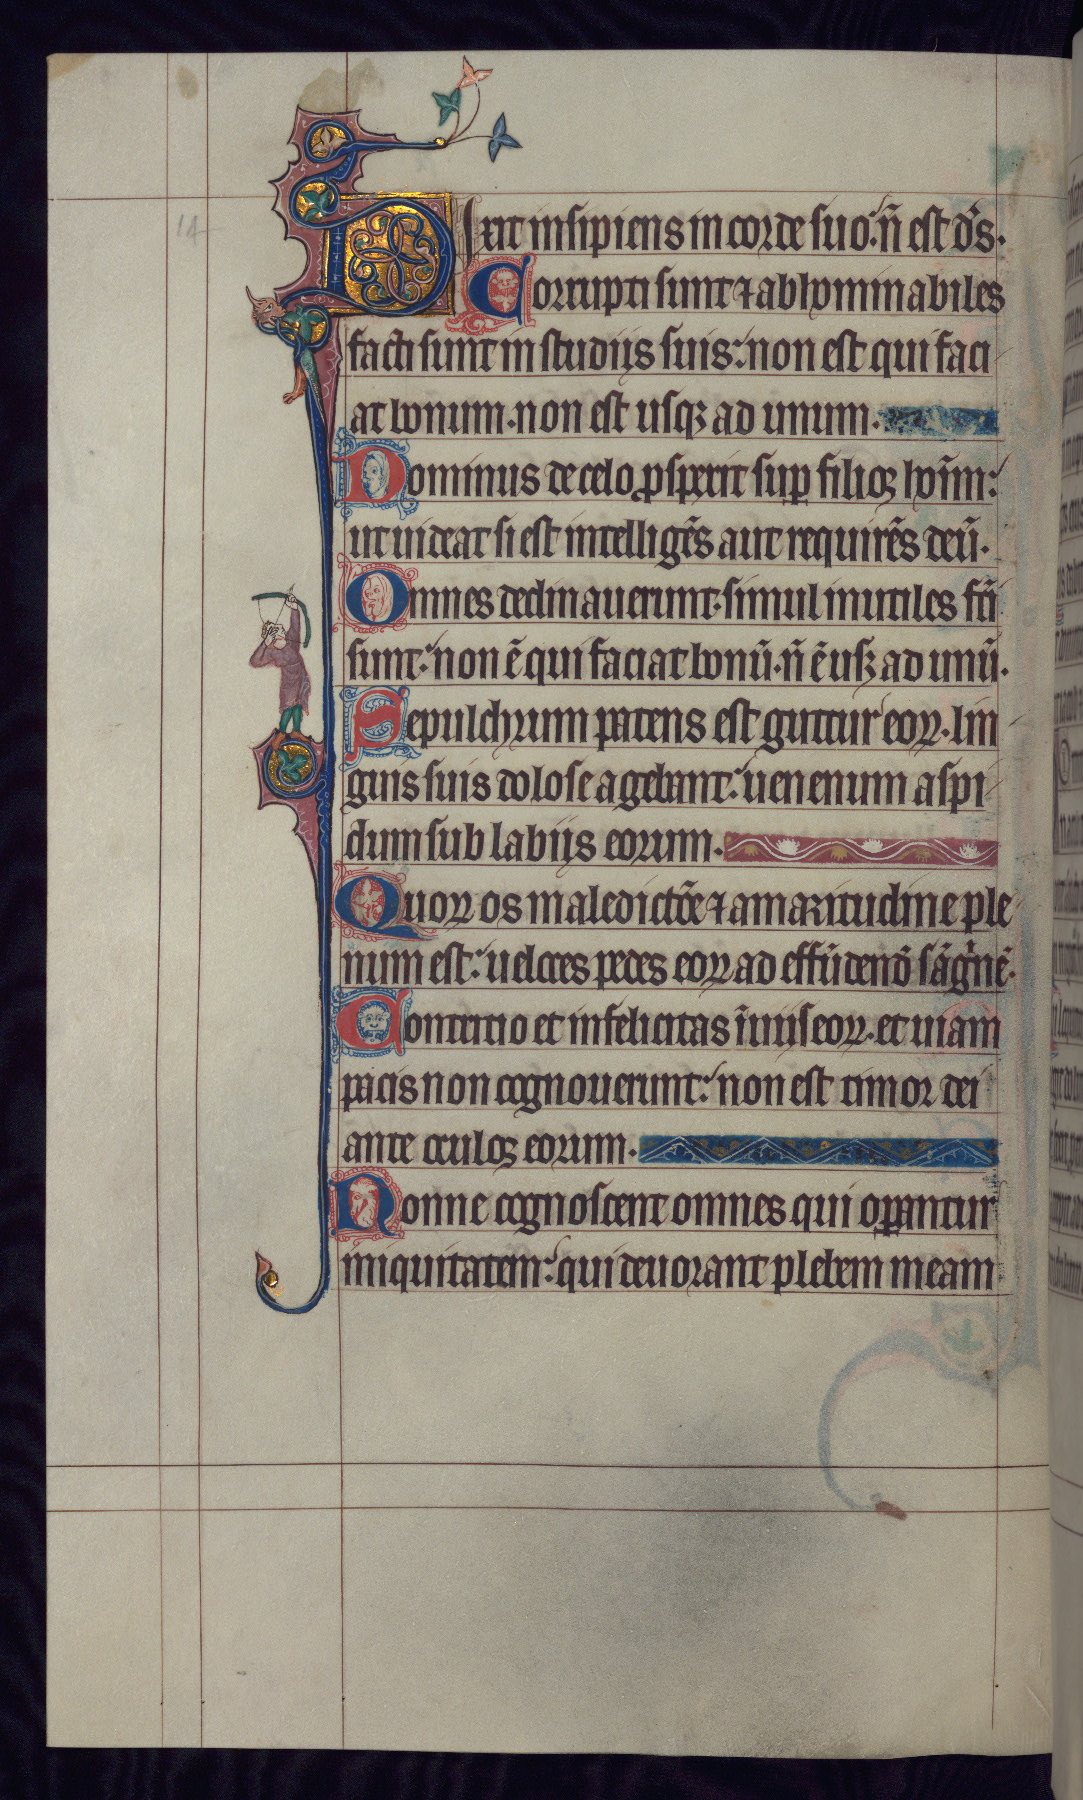 14
Dixit insipiens in corde suo: ñ est d̃s.
Corrupti sunt ⁊ abhominabiles
facti sunt in studijs suis: non est qui faci
at bonum. non est usqꝫ ad unum.
Dominus de celo ꝓspexit suꝑ filios hoĩm:
ut uideat si est intelligẽs aut requirẽs deũ.
Omnes declinauerunt. simul inutiles fc̃i
sunt: non ẽ qui faciat bonũ. ñ ẽ usqꝫ ad unũ.
Sepulchrum patens est guttur eoꝝ. lin
guis suis dolose agebant: uenenum aspi
dum sub labijs eorum.
Quoꝝ os maledictõe ⁊ amaritudine ple
num est: ueloces pedes eoꝝ ad effũdendũ sãguinẽ.
Contritio et infelicitas ĩ uijs eoꝝ. et uiam
pacis non cognouerunt: non est timor dei
ante oculos eorum.
Nonne cognoscent omnes qui oꝑantur
iniquitatem: qui deuorant plebem meam